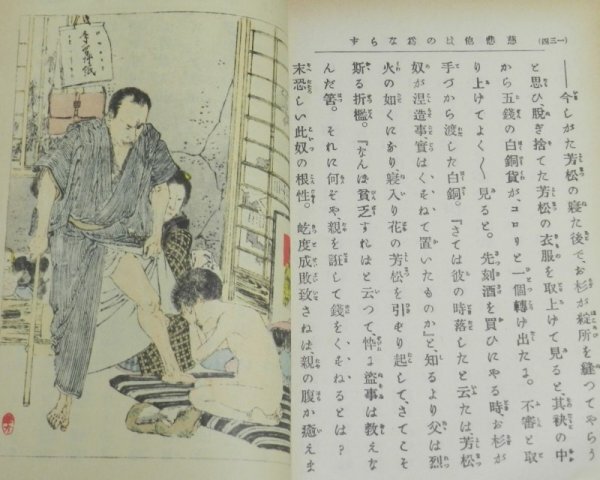 慈悲他はの爲ならず
(一三四)
——今しがた芳松の寝た後で、お杉が綻所を縫つてやらう
と思ひ脱ぎ捨てた芳松の衣服を取上けて見ると、其袂の中
から五錢の白銅貨が、コロリと一個轉け出たよ。不審と取
り上けてよく〳〵見ると。先刻酒を買ひにやる時、お杉が
手づから渡した白銅。『さては彼の時落したと云たは芳松
奴が涅造事、實はくすねて置いたものか』と知るより父は烈
火の如くにかり寝入り花の芳松を引ずり起して、さてこそ
斯る折檻。『なんぼ貧乏すれはと云つて、忰に盜事は教えな
んだ筈。それに何ぞや、親を誑して錢をくすねるとは？
末恐しい此奴の根性。屹度成敗致さねは、親の腹か癒えま